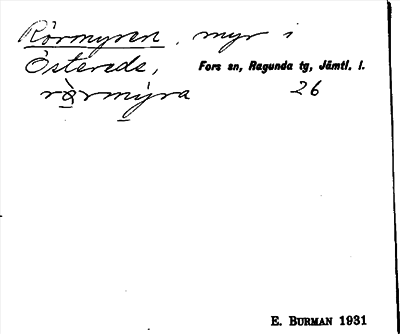 Rörmyren, myr i
Österede, Fors sn, Ragunda tg, Jämtl. l.
rö̀rmýra 26
E. BURMAN 1931